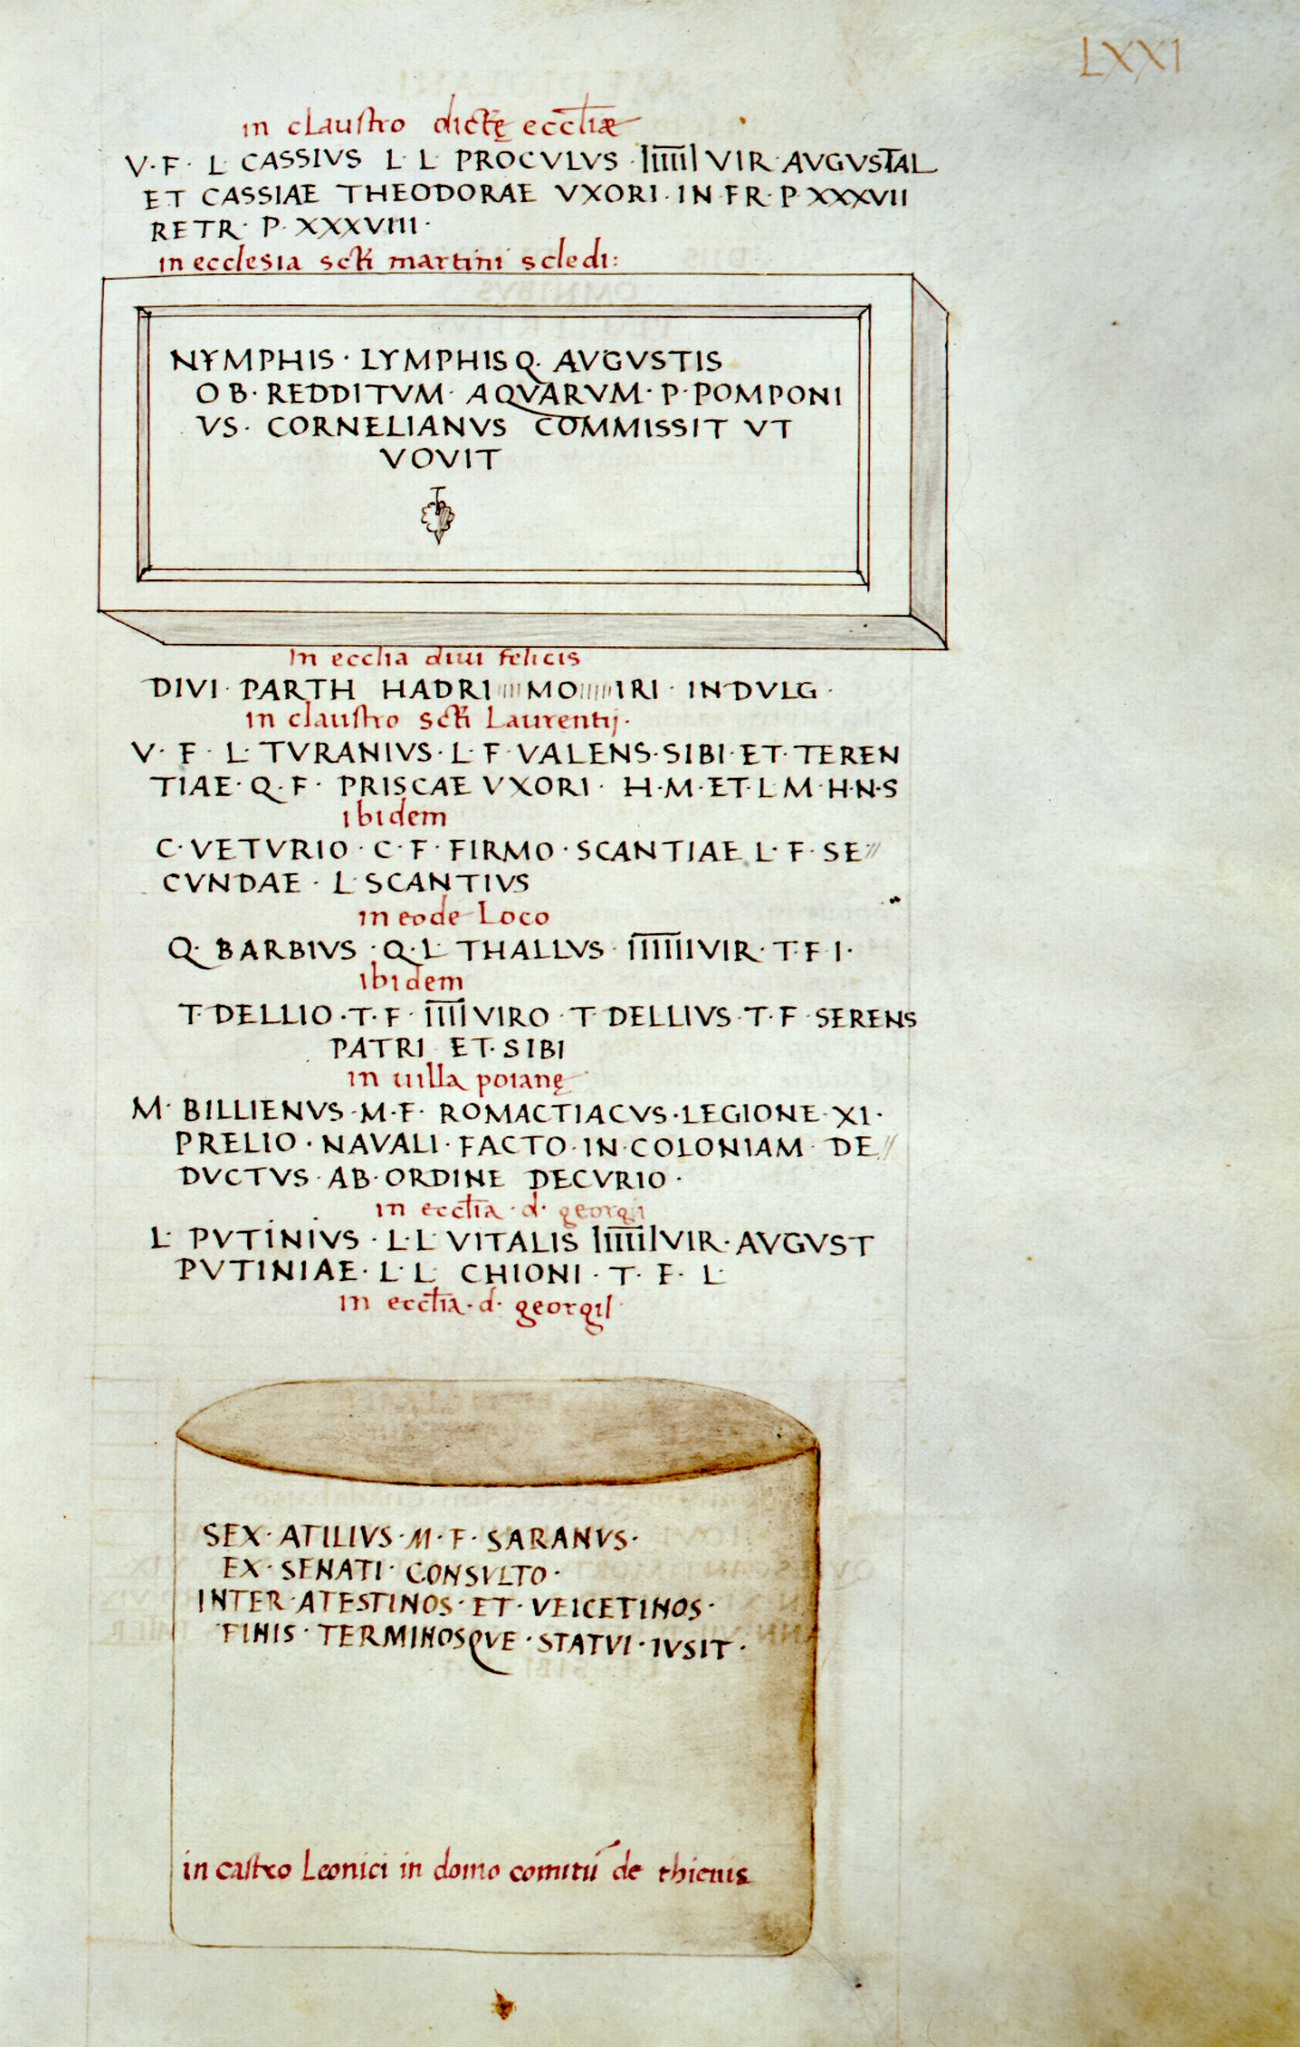 LXXI
in claustro dictę eccl̄iæ
V·F· L CASSIVS L·L PROCVLVS ·IIIIII VIR AVGVSTAL
ET CASSIAE THEODORAE VXORI·IN·FR·P XXXVII
RETR· P·XXXVIII·
in ecclesia scti martini scledi:
NYMPHIS · LYMPHISQ· AVGVSTIS
OB·REDDITVM AQVARVM·P·POMPONI
VS· CORNELIANVS COMMISSIT VT
VOVIT
In ecclia diui felicis
DIVI·PARTH HADRI////MO/////IRI · INDVLG·
in claustro scti Laurentij·
V· F· L·TVRANIVS·L·F·VALENS·SIBI·ET·TEREN
TIAE·Q·F· PRISCAE VXORI· H·M·ET·L·M·H·N·S
ibidem
C·VETVRIO·C·F·FIRMO·SCANTIAE L·F·SE//
CVNDAE · L·SCANTIVS
in eodē Loco
Q·BARBIVS·Q·L·THALLVS·IIIIIIVIR·T·F·I·
ibidem
T·DELLIO·T·F·IIIIVIRO·T·DELLIVS·T·F·SERENS
PATRI ET·SIBI
in uilla poianę
M·BILLIENVS·M·F· ROMACTIACVS·LEGIONE·XI·
PRELIO·NAVALI·FACTO·IN·COLONIAM·DE//
DVCTVS·AB·ORDINE DECVRIO·
in eccl̄ia·d· georgii
L· PVTINIVS·L·L VITALIS IIIIIIVIR·AVGVST
PVTINIAE·L·L· CHIONI·T·F·L
in eccl̄ia·d· georgii
SEX·ATILIVS·M·F·SARANVS·
EX·SENATI·CONSVLTO·
INTER·ATESTINOS·ET·VEICETINOS·
FINIS·TERMINOSQVE·STATVI·IVSIT·
in castro Leonici in domo comitū de thienis